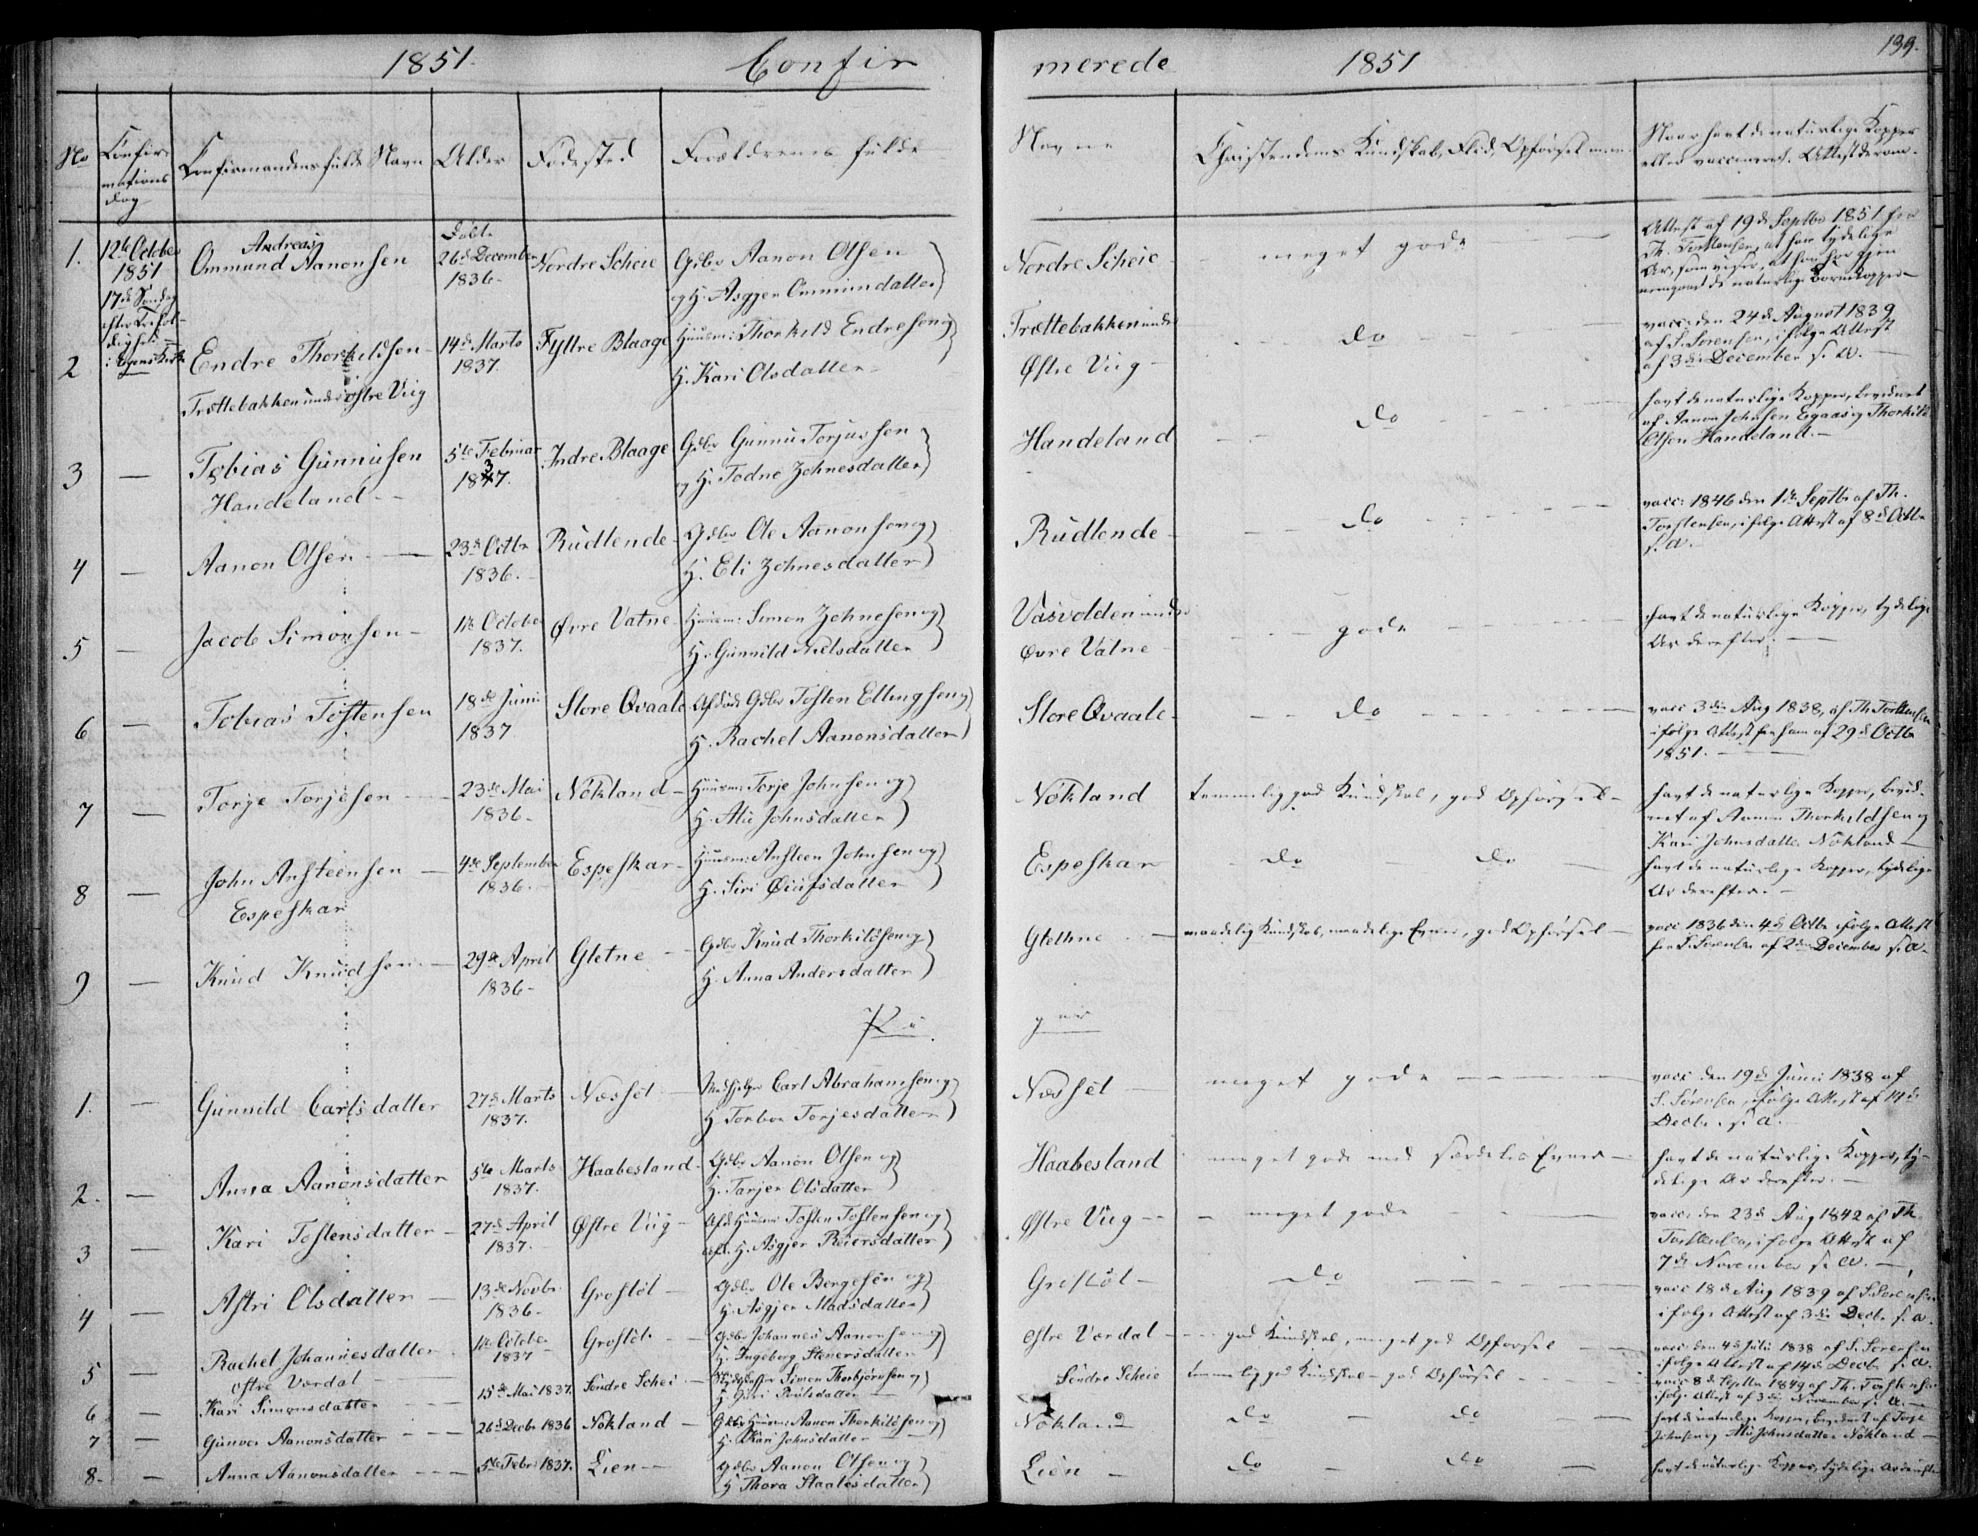 1851. Confir
merede 1851
139.
No Confir- mations dag Confirmandens fulde Navn Alder Fødested Forældrenes fulde
Navne Christendoms Kundskab, Flid, Opførsel m.m. Naar havt de naturlige Kopper
eller vaccineret. Attest derom.
1. 12te October 1851 17de Søndag efter Trefol- digheds
Ommund Andreas Aanonsen
Døbt 26de December 1836-
Nordre Scheie
Gdbr Aanon Olsen
og H. Asgjer Ommundatter)
Nordre Scheie
meget gode
Attest af 19de Septbr 1851 fra
Th. Torstensen, at har tydelige
2 Endre Thorkildsen
Trættebakken under østre Viig
14de Marts 1837.
Fyttre Blaage
Huusm: Thorkild Endresen og
H. Kari Olsdatter
Trættebakken under
Østre Viig -
do
vacc: den 24de August 1839
af S. Sørensen, ifølge Attest
af 3die December s. A.
3 - Tobias Gunnusen
Handeland -
5te Februar 1837.
Indre Blaage
Gdbr Gunnu Torjussen
og H. Todne Zohnesdatter)
Handeland
do
havt de naturlige Kopper, bevidnet
af Aanon Johnsen Egaas og Thorkild
Olsen Handeland. -
4 - Aanon Olsen
23de Octbr 1836.
Rudlende
Gdbr Ole Aanonsen og)
H. Eli Zohnesdatter)
Rudlende
do
vacc: 1846 den 1te Septbr af Th.
Torstensen, ifølge Attest af 8de Octbr
s. A. -
5 - Jacob Simonsen -
11te October 1837.
Øvre Vatne
Huusm: Simon Zohnesen og)
H. Gunnild Nielsdatter
Vasvolden under
Øvre Vatne
gode
havt de naturlige Kopper, tydelige
Ar derefter. -
6 - Tobias Tostensen
18de Juni 1837
Store Qvaale
Afdøde Gdbr Tosten Ellingsen og)
H. Rachel Aanonsdatter)
Store Qvaale
do
vacc 3die Aug 1838, af Th Torstensen
ifølge Attest fra ham af 29de Octbr
1851.
7 - Torje Torjesen
23de Mai 1836-
Nøkland -
Huusm: Torje Johnsen og)
H. Alie Johnsdatter)
Nøkland
temmelig god Kundskab, god Opførsel -
havt de naturlige Kopper, bevid-
net af Aanon Thorkildsen og
Kari Johnsdatter Nøkland -
8 - John Ansteensen
Espeskar
4de September 1836.
Espeskar
Huusm: Ansteen Johnsen og)
H. Siri Øiufsdatter
Espeskar
do - do
havt de naturlige Kopper, tydelige
Ar derefter. -
9 - Knud Knudsen
29de April 1836-
Gletne
Gdbr Knud Thorkildsen og)
H. Anna Andersdatter)
Glethne
maadelig Kundskab, maadelige Evner, god Opførsel -
vacc 1836 den 4de Octbr ifølge Attest
fra S. Sørensen af 2den December s. A.
Pi
ger
1. - Gunnild Carlsdatter
27de Marts 1837.
Næsset
Medhjelper Carl Abrahamsen og)
H Torbor Torjesdatter)
Næsset
meget gode
vacc den 19de Junii 1838 af
S. Sørensen, ifølge Attest af 14de
Decbr. s. A. -
2. - Anna Aanonsdatter
5te Marts 1837.
Haabesland
Gdbr Aanon Olsen og)
H. Tarjer Olsdatter
Haabesland
meget gode med særdeles Evner -
havt de naturlige Kopper, ty-
delige Ar derefter. -
3 - Kari Tostensdatter
27de April 1837.
Østre Viig
Afd. Huusm: Tosten Tostensen og)
afd. H. Asgjer Reiersdatter)
Østre Viig
meget gode
vacc: den 23de Aug 1842 af Th.
Torstensen, ifølge Attest af
7de November s. A. -
4 - Astri Olsdatter
13de Novbr. 1836-
Grostøl
Gdbr Ole Bergesen og)
H. Asgjer Madsdatter)
Grostøl -
do
vacc 18de Aug 1839 af S. Sørensen
ifølge Attest af 3die Decbr s. A.
5 - Rachel Johannesdatter
østre Værdal
1te October 1837
Grostøl
Gdbr Johannes Aanonsen og)
H. Ingeborg Stenersdatter
østre Værdal
god Kundskab, meget god Opførsel
vacc: den 4de Julii 1838 af S. Sørensen
ifølge Attest af 14de Decbr s. A.
6 - Kari Simonsdatter
15de Mai 1837.
Søndre Schei
Simon Thorbjørnsen og)
H. Guri Poulsdatter
Søndre Scheie
temmelig god Kundskab - god Opførsel
vacc 8de Septbr 1849 af Th. Torstensen
ifølge Attest af 3die November s. A. -
7 - Gunvor Aanonsdatter
26de Decbr 1836
Nøkland
Huusm: Aanon Thorkildsen og)
H. Kari Johnsdatter
Nøkland
do - do
havt de naturlige Kopper, bevidnet af Torje
Johnsen og Alie Johnsdatter Nøkland -
8- - Anna Aanonsdatter
5te Febr 1837.
Lien
Gdbr Aanon Olsen og)
H Thora Staalesdatter)
Lien
do - do
havt de naturlige Kopper, tydelige Ar derefter